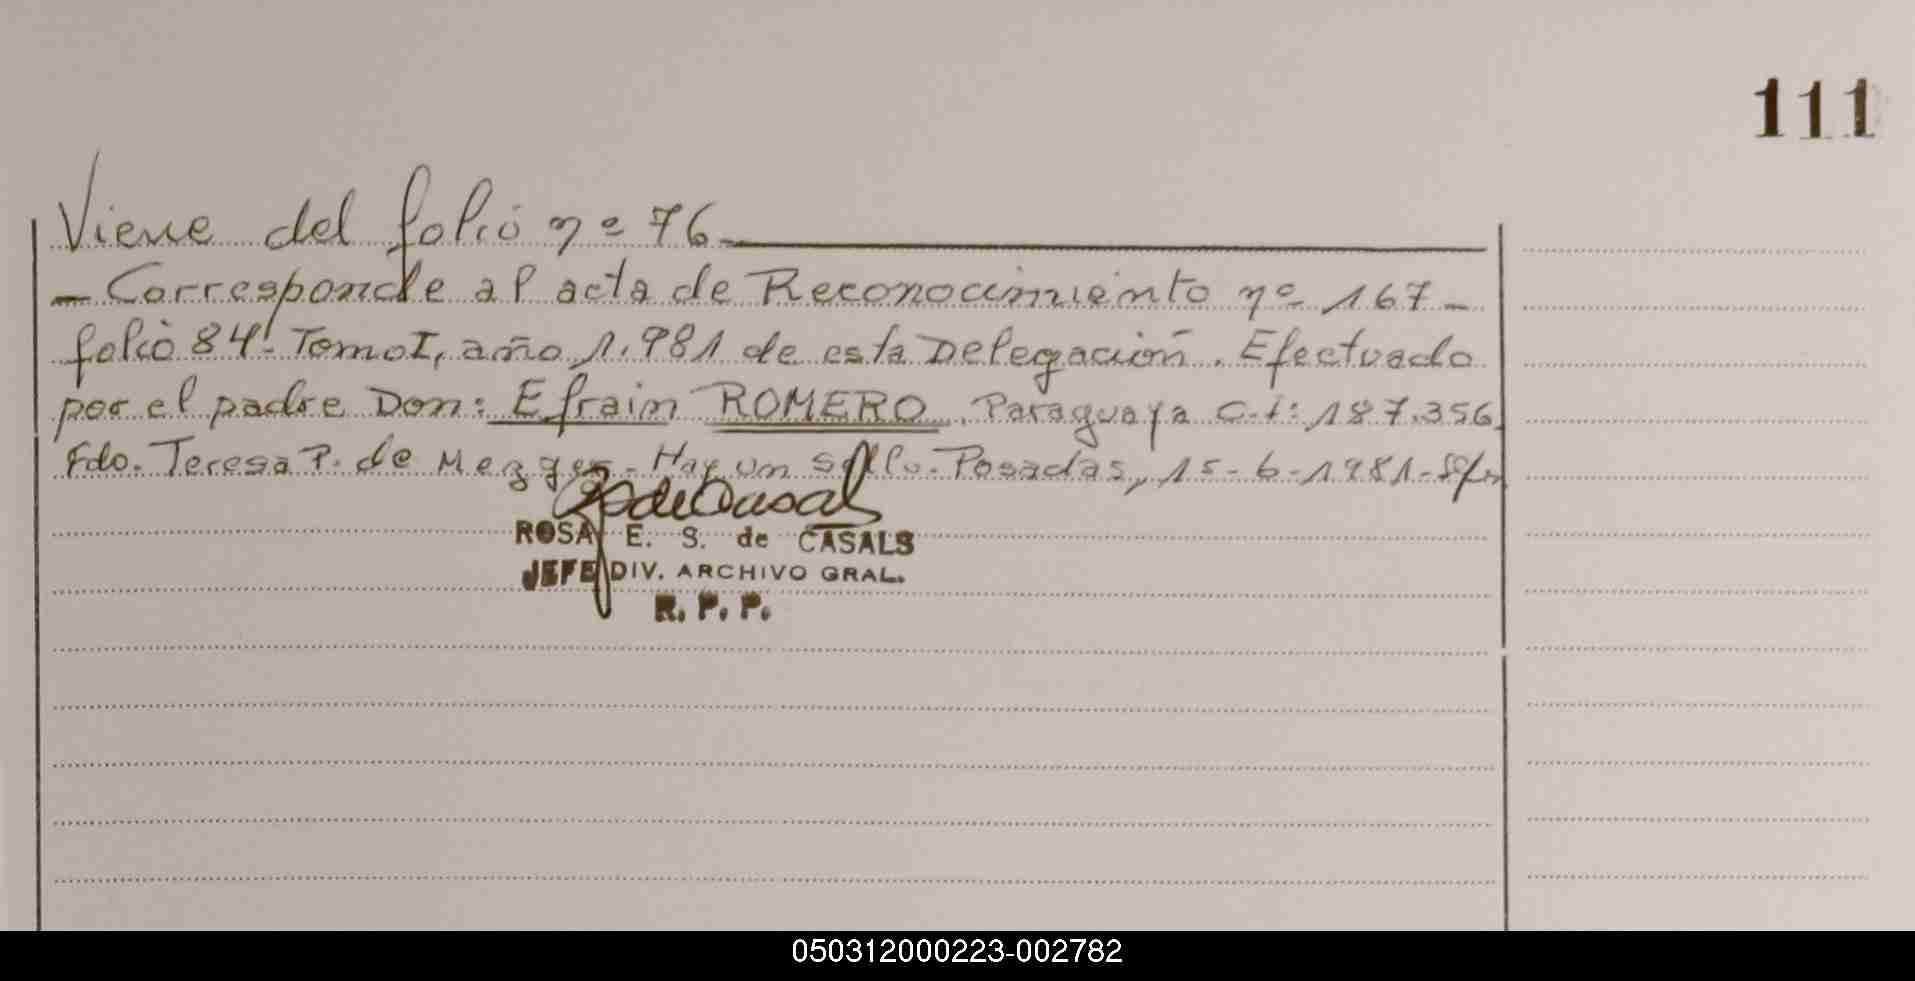 111
Viene del folio nº 76
- Corresponde al acta de Reconocimiento nº 167-
folio 84. Tomo I, año 1.981 de esta Delegación. Efectuado
por el padre Don: Efrain ROMERO. Paraguaya C.I: 187.356
Fdo. Teresa P. de Mezger - Hay un sello. Posadas, 15-6-1981-
ROSA E. S. de CASALS
JEFE DIV. ARCHIVO GRAL.
R. P. P.
050312000223-002782